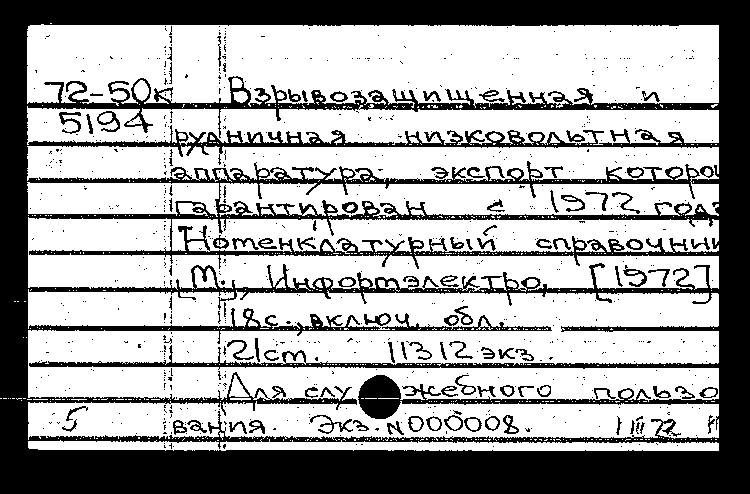 72-50к Взрывозащищенная и
5194 рудничная низковольтная
аппаратура, экспорт которо
гарантирован с 1972 года
Номенклатурный справочник
[М.], Информэлектро, [1972]
18с., включ. обл.
21см. 11312 экз.
Для служебного пользо
5 вания. Экз. N000008. 1 III 72